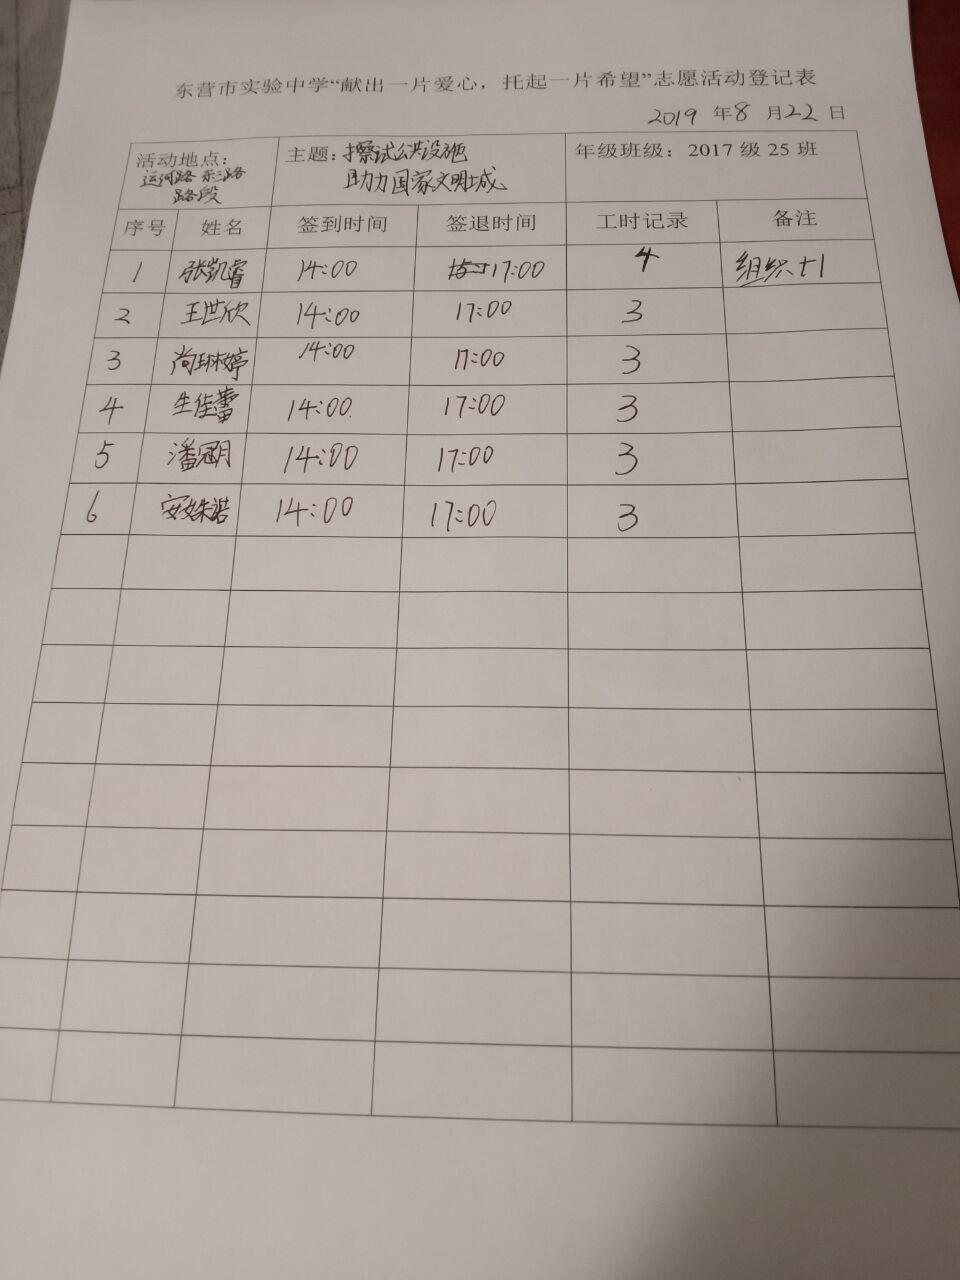 东营市实验中学“献出一片爱心，托起一片希望”志愿活动登记表
2019 年 8 月 22 日
活动地点：
运河路 东三路
路段
主题：擦试公共设施
助力国家文明城
年级班级：2017 级 25 班
序号 姓名 签到时间 签退时间 工时记录 备注
1 张凯睿 14:00 17:00 4 组织+1
2 王世欣 14:00 17:00 3
3 尚琳婷 14:00 17:00 3
4 生佳蕾 14:00 17:00 3
5 潘冠月 14:00 17:00 3
6 安姝诺 14:00 17:00 3